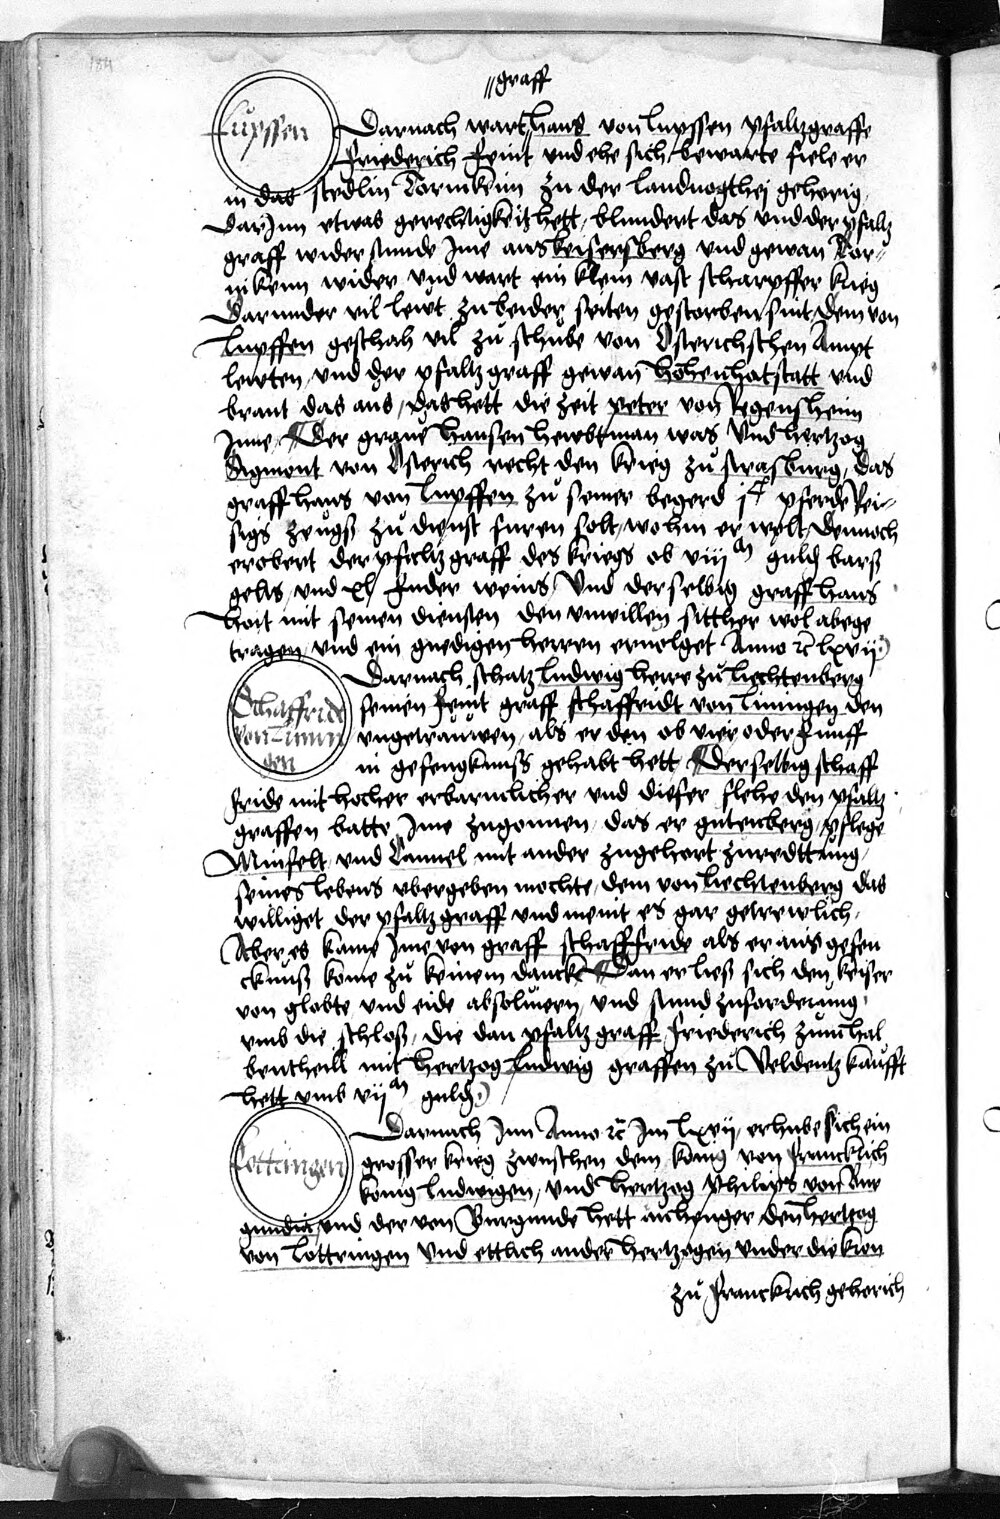 184
graff
Lupffen
Darnach wart hans von lupffen pfaltzgraffe
Friederich feint vnd ehe sich bewarte fiele er
in das stedlin Tornikeim zu der landuogthej gehorig
darJnn etwas gerechtigkeit hett, blundert das vnd der pfaltz
graff widerstunde Jme aus keisersberg vnd gewan Tor-
nikeim wider vnd wart ein klein vast scharpffer krieg
Darunder vil lewt zu beider seiten gestorben sint, dem von
lupffen geschah vil zu schube von Osterichschen Ampt
lewten, vnd der pfaltzgraff gewan hohenhatstatt vnd
brant das aus, das hett die zeit peter von Regensheim
Jnne, Der graue hansen hewbtman was Vnd hertzog
Sigmont von Osterich recht den krieg zu strasburg, das
graff hans von lupffen zu seiner begerd pferde Rei-
sigs zeugs zu dienst furen solt, wohin er wolt, dennoch
erobert der pfaltzgraff des kriegs ob viij gulden bars
gelts, vnd xl fuder weins, Vnd derselbig graff hans
hait mit seinen diensten den vnwillen sitther wol abege
tragen, vnd ein gnedigen herren eruolget Anno &c lxvij
Schaffride
von Linin
gen
Darnach schatz ludwig herre zu liechtenberg
seinen feint graff schaffridt von liningen den
vngetrauwen, als er den ob vier oder funff
in gefengknuss gehabt hett, Derselbig schaff
fride mit hocher erbarmlicher vnd dieser flehe den pfaltz
graffen batte Jme zugonnen, das er gutenberg, pflege
Minfelt, vnd Cannel mit ander zugehort zuredttung
seines lebens vbergeben mochte, dem von liechtenberg das
williget der pfaltzgraff vnd meint es gar getrewlich,
Aber es kame Jme von graff schaffride als er aus gefen
cknuss kome zu keinem dancke, Dan er liess sich den keiser
von globte vnd eide absoluiern, vnd stund zuforderung
vmb die schloss, die dan pfaltzgraff friederich zum hal
bentheill mit hertzog ludwig graffen zu Veldentz kaufft
hett vmb vij gulden
Lottringen
Darnach Jnn Anno &c Jm lxvij erhube sich ein
grosser krieg zwuschen dem konig von franckrich
konig ludwigen, vnd hertzog Philips von Bur
gundia, vnd der von Burgunde hett anhenger den hertzog
von lottringen Vnd ettlich ander hertzogen vnder die kron
zu franckrich gehorich